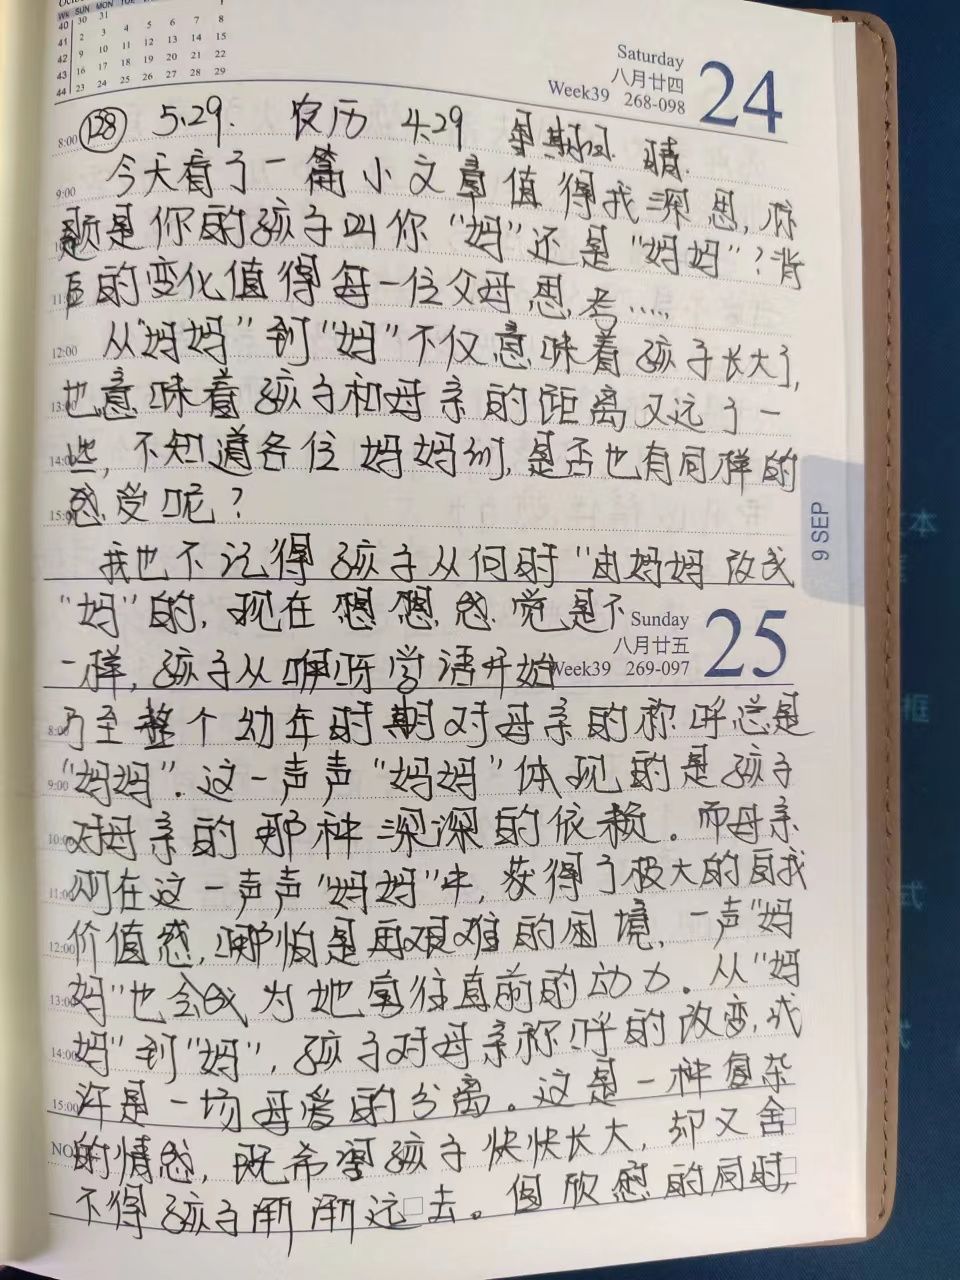 WK SUN MON
40 30 31
41 2 3 4 5 6 7 8
42 9 10 11 12 13 14 15
43 16 17 18 19 20 21 22
44 23 24 25 26 27 28 29
Saturday
八月廿四
Week39 268-098
24
8:00 138 5.29. 农历 4.29 星期四. 晴.
9:00 今天看了一篇小文章值得我深思,标
题是你的孩子叫你“妈”还是“妈妈”?背
后的变化值得每一位父母思考.....
12:00 从“妈妈”到“妈”不仅意味着孩子长大了,
也意味着孩子和母亲的距离又远了一
些,不知道各位妈妈们,是否也有同样的
感受呢?
我也不记得孩子从何时“由妈妈改成
“妈”的,现在想想感觉是不
一样,孩子从咿呀学语开始
Sunday
八月廿五
Week39 269-097
25
9 SEP
8:00 乃至整个幼年时期对母亲的称呼总是
9:00 “妈妈”.这一声声“妈妈”体现的是孩子
对母亲的那种深深的依赖。而母亲
则在这一声声“妈妈”中,获得了极大的自我
12:00 价值感,哪怕是再艰难的困境,一声“妈
13:00 妈”也会成为她勇往直前的动力.从“妈
14:00 妈”到“妈”,孩子对母亲称呼的改变,或
15:00 许是一场母爱的分离。这是一种复杂
的情感,既希望孩子快快长大,却又舍
不得孩子渐渐远去。但欣慰的同时,